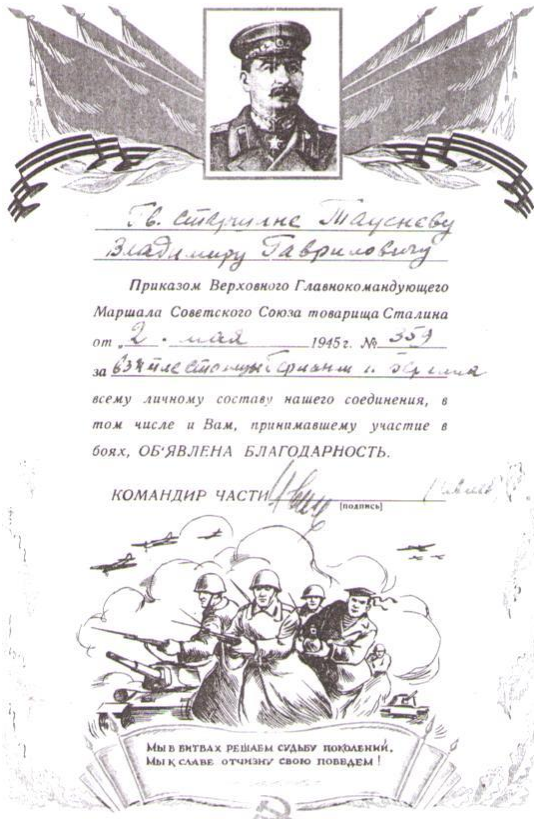 Гв. старшине Таусневу
Владимиру Гавриловичу
Приказом Верховного Главнокомандующего
Маршала Советского Союза товарища Сталина
от „2 • мая 1945 г. № 359
за взятие столицы Германии г. Берлина
всему личному составу нашего соединения, в
том числе и Вам, принимавшему участие в
боях, ОБ'ЯВЛЕНА БЛАГОДАРНОСТЬ.
КОМАНДИР ЧАСТИ
[подпись]
МЫ В БИТВАХ РЕШАЕМ СУДЬБУ ПОКОЛЕНИЙ,
МЫ К СЛАВЕ ОТЧИЗНУ СВОЮ ПОВЕДЕМ!